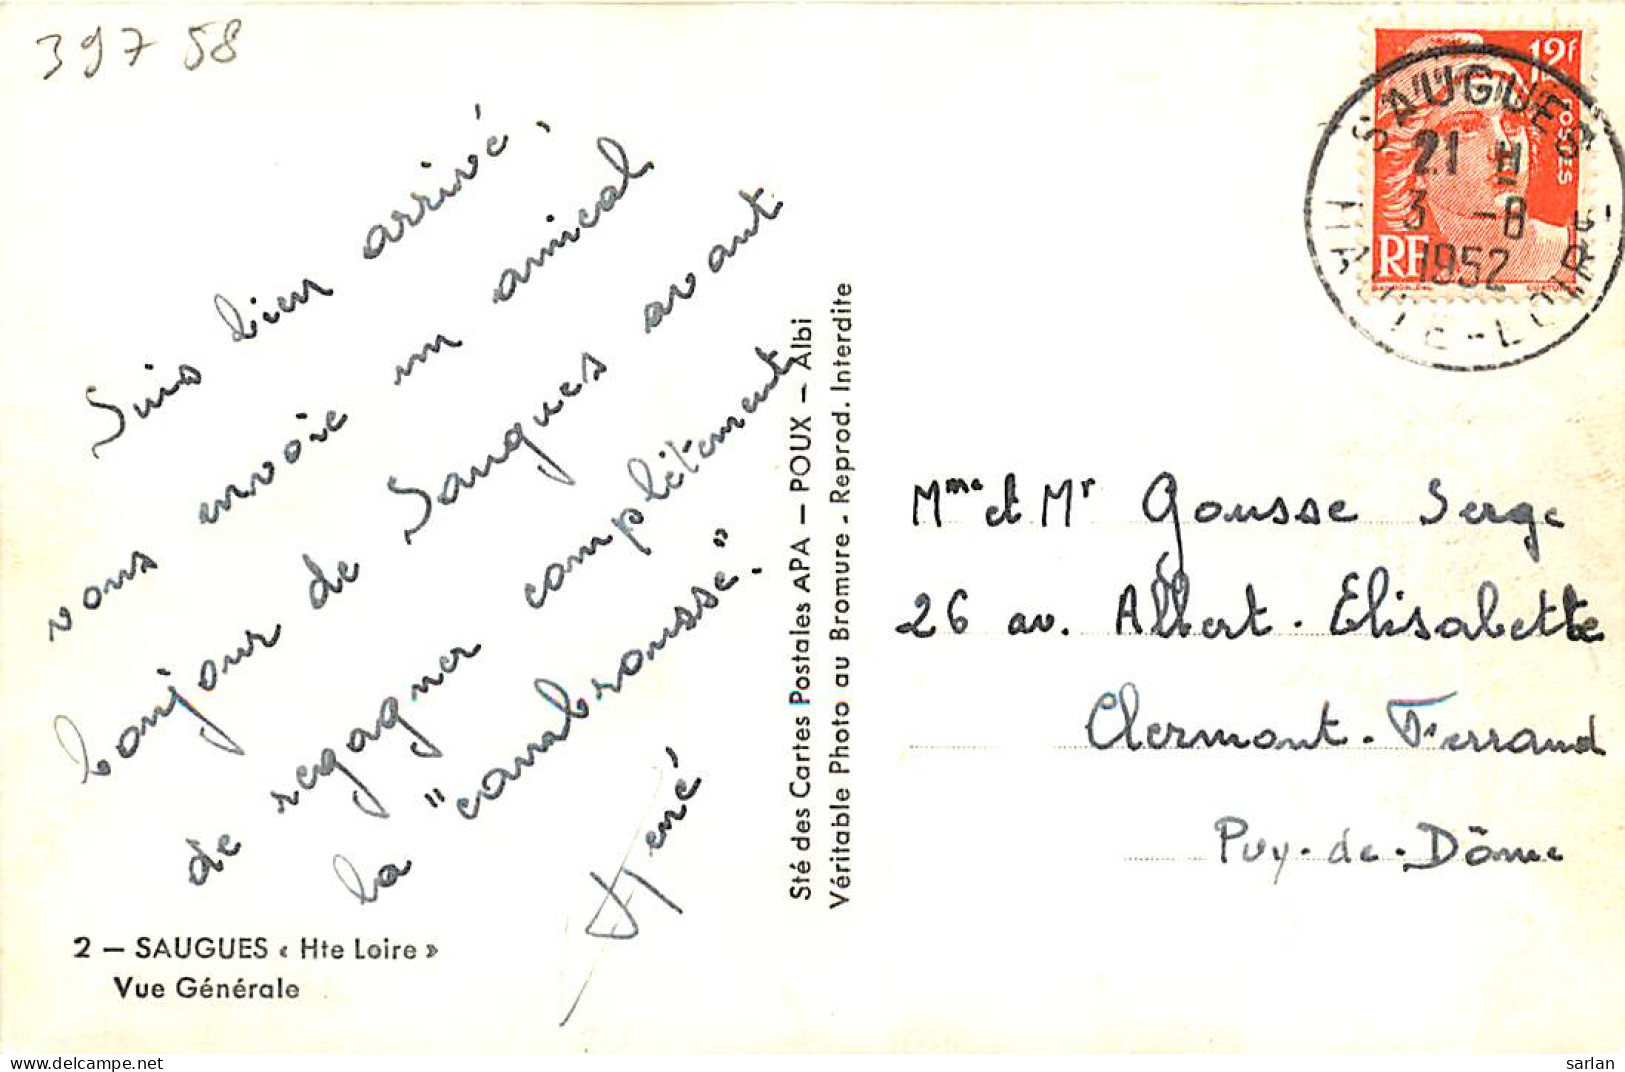 397 58
Suis bien arrivé,
vous envoie un amical
bonjour de Saugues avant
de regagner complètement
la "cambrousse".
2 — SAUGUES « Hte Loire »
Vue Générale
Sté des Cartes Postales APA — POUX — Albi
Véritable Photo au Bromure - Reprod. Interdite
12f
POSTES
RF
SAUGUES
21 H
3 -8
1952
HAUTE-LOIRE
Mme et Mr Gousse Serge
26 av. Albert-Elisabette
Clermont-Ferrand
Puy-de-Dôme
sarlan